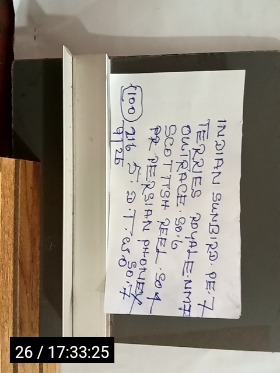 INDIAN SUNBIRD. PE 7
TERRIES ROYALE. NMI
OUTRACE. 80.6
SCOTTISH REEL. 80.1
PR PERSIAN PHONEX
(100) 216 5. D T. W. 80.7
9 / 25
26 / 17:33:25